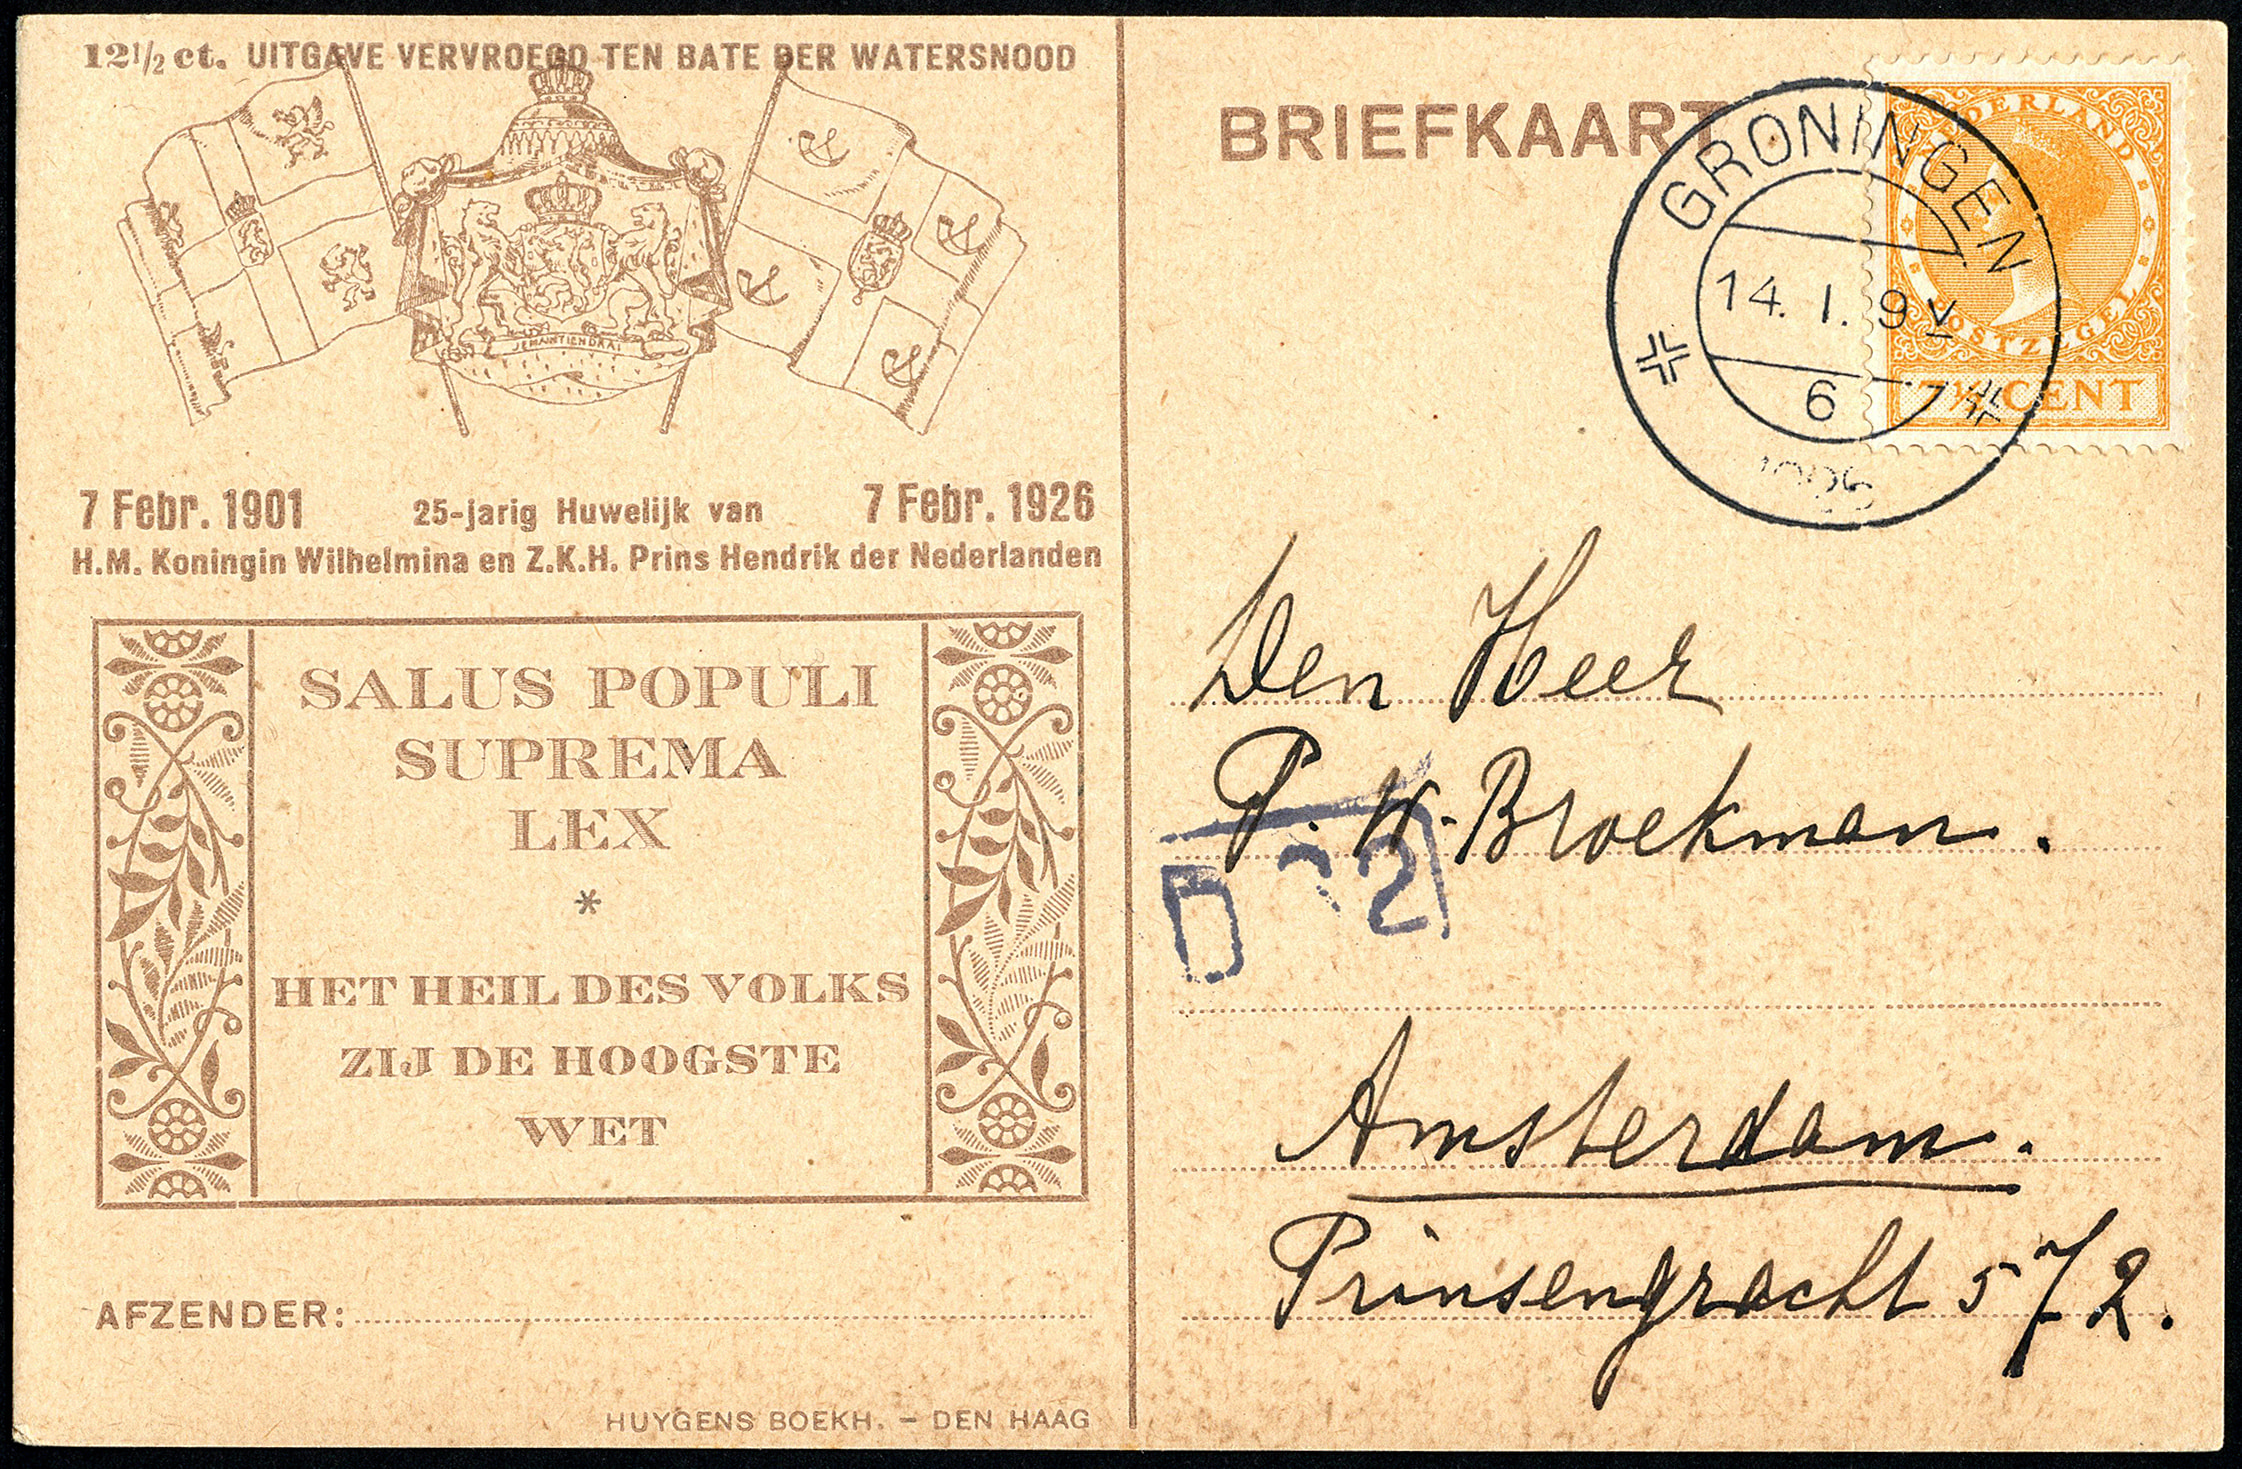 12½ ct. UITGAVE VERVROEGD TEN BATE DER WATERSNOOD
JE MAINTIENDRAI
7 Febr. 1901 25-jarig Huwelijk van 7 Febr. 1926
H.M. Koningin Wilhelmina en Z.K.H. Prins Hendrik der Nederlanden
SALUS POPULI
SUPREMA
LEX
*
HET HEIL DES VOLKS
ZIJ DE HOOGSTE
WET
AFZENDER:
HUYGENS BOEKH. – DEN HAAG
BRIEFKAART
GRONINGEN
14. I. 9 V
6
1926
NEDERLAND
POSTZEGEL
7½ CENT
Den Heer
P. W. Broekman.
Amsterdam.
Prinsengracht 572.